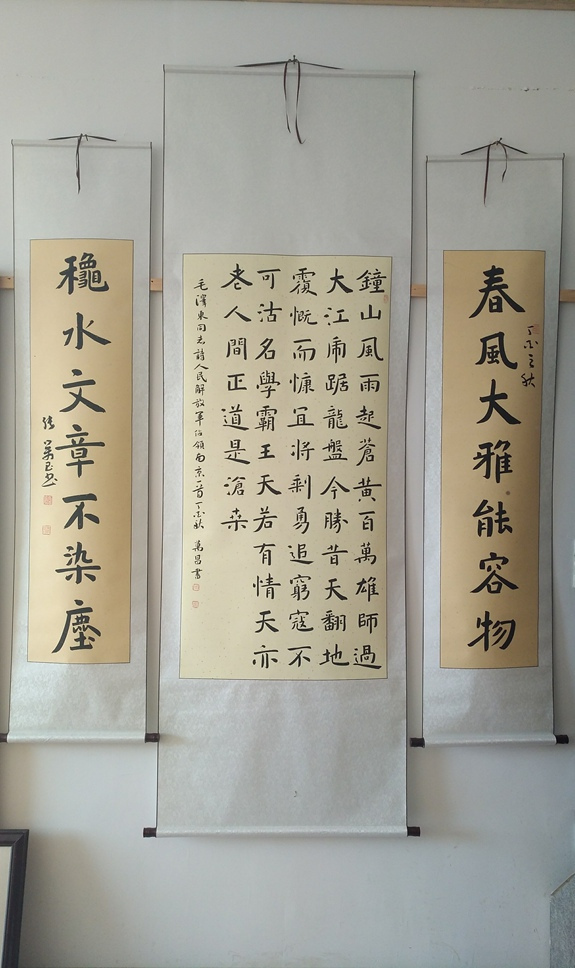 春風大雅能容物
丁酉之秋
鐘山風雨起蒼黃百萬雄師過
大江虎踞龍盤今勝昔天翻地
覆慨而慷宜將剩勇追窮寇不
可沽名學霸王天若有情天亦
老人間正道是滄桑
毛澤東同志詩人民解放軍佔領南京一首丁酉秋 萬昌書
龝水文章不染塵